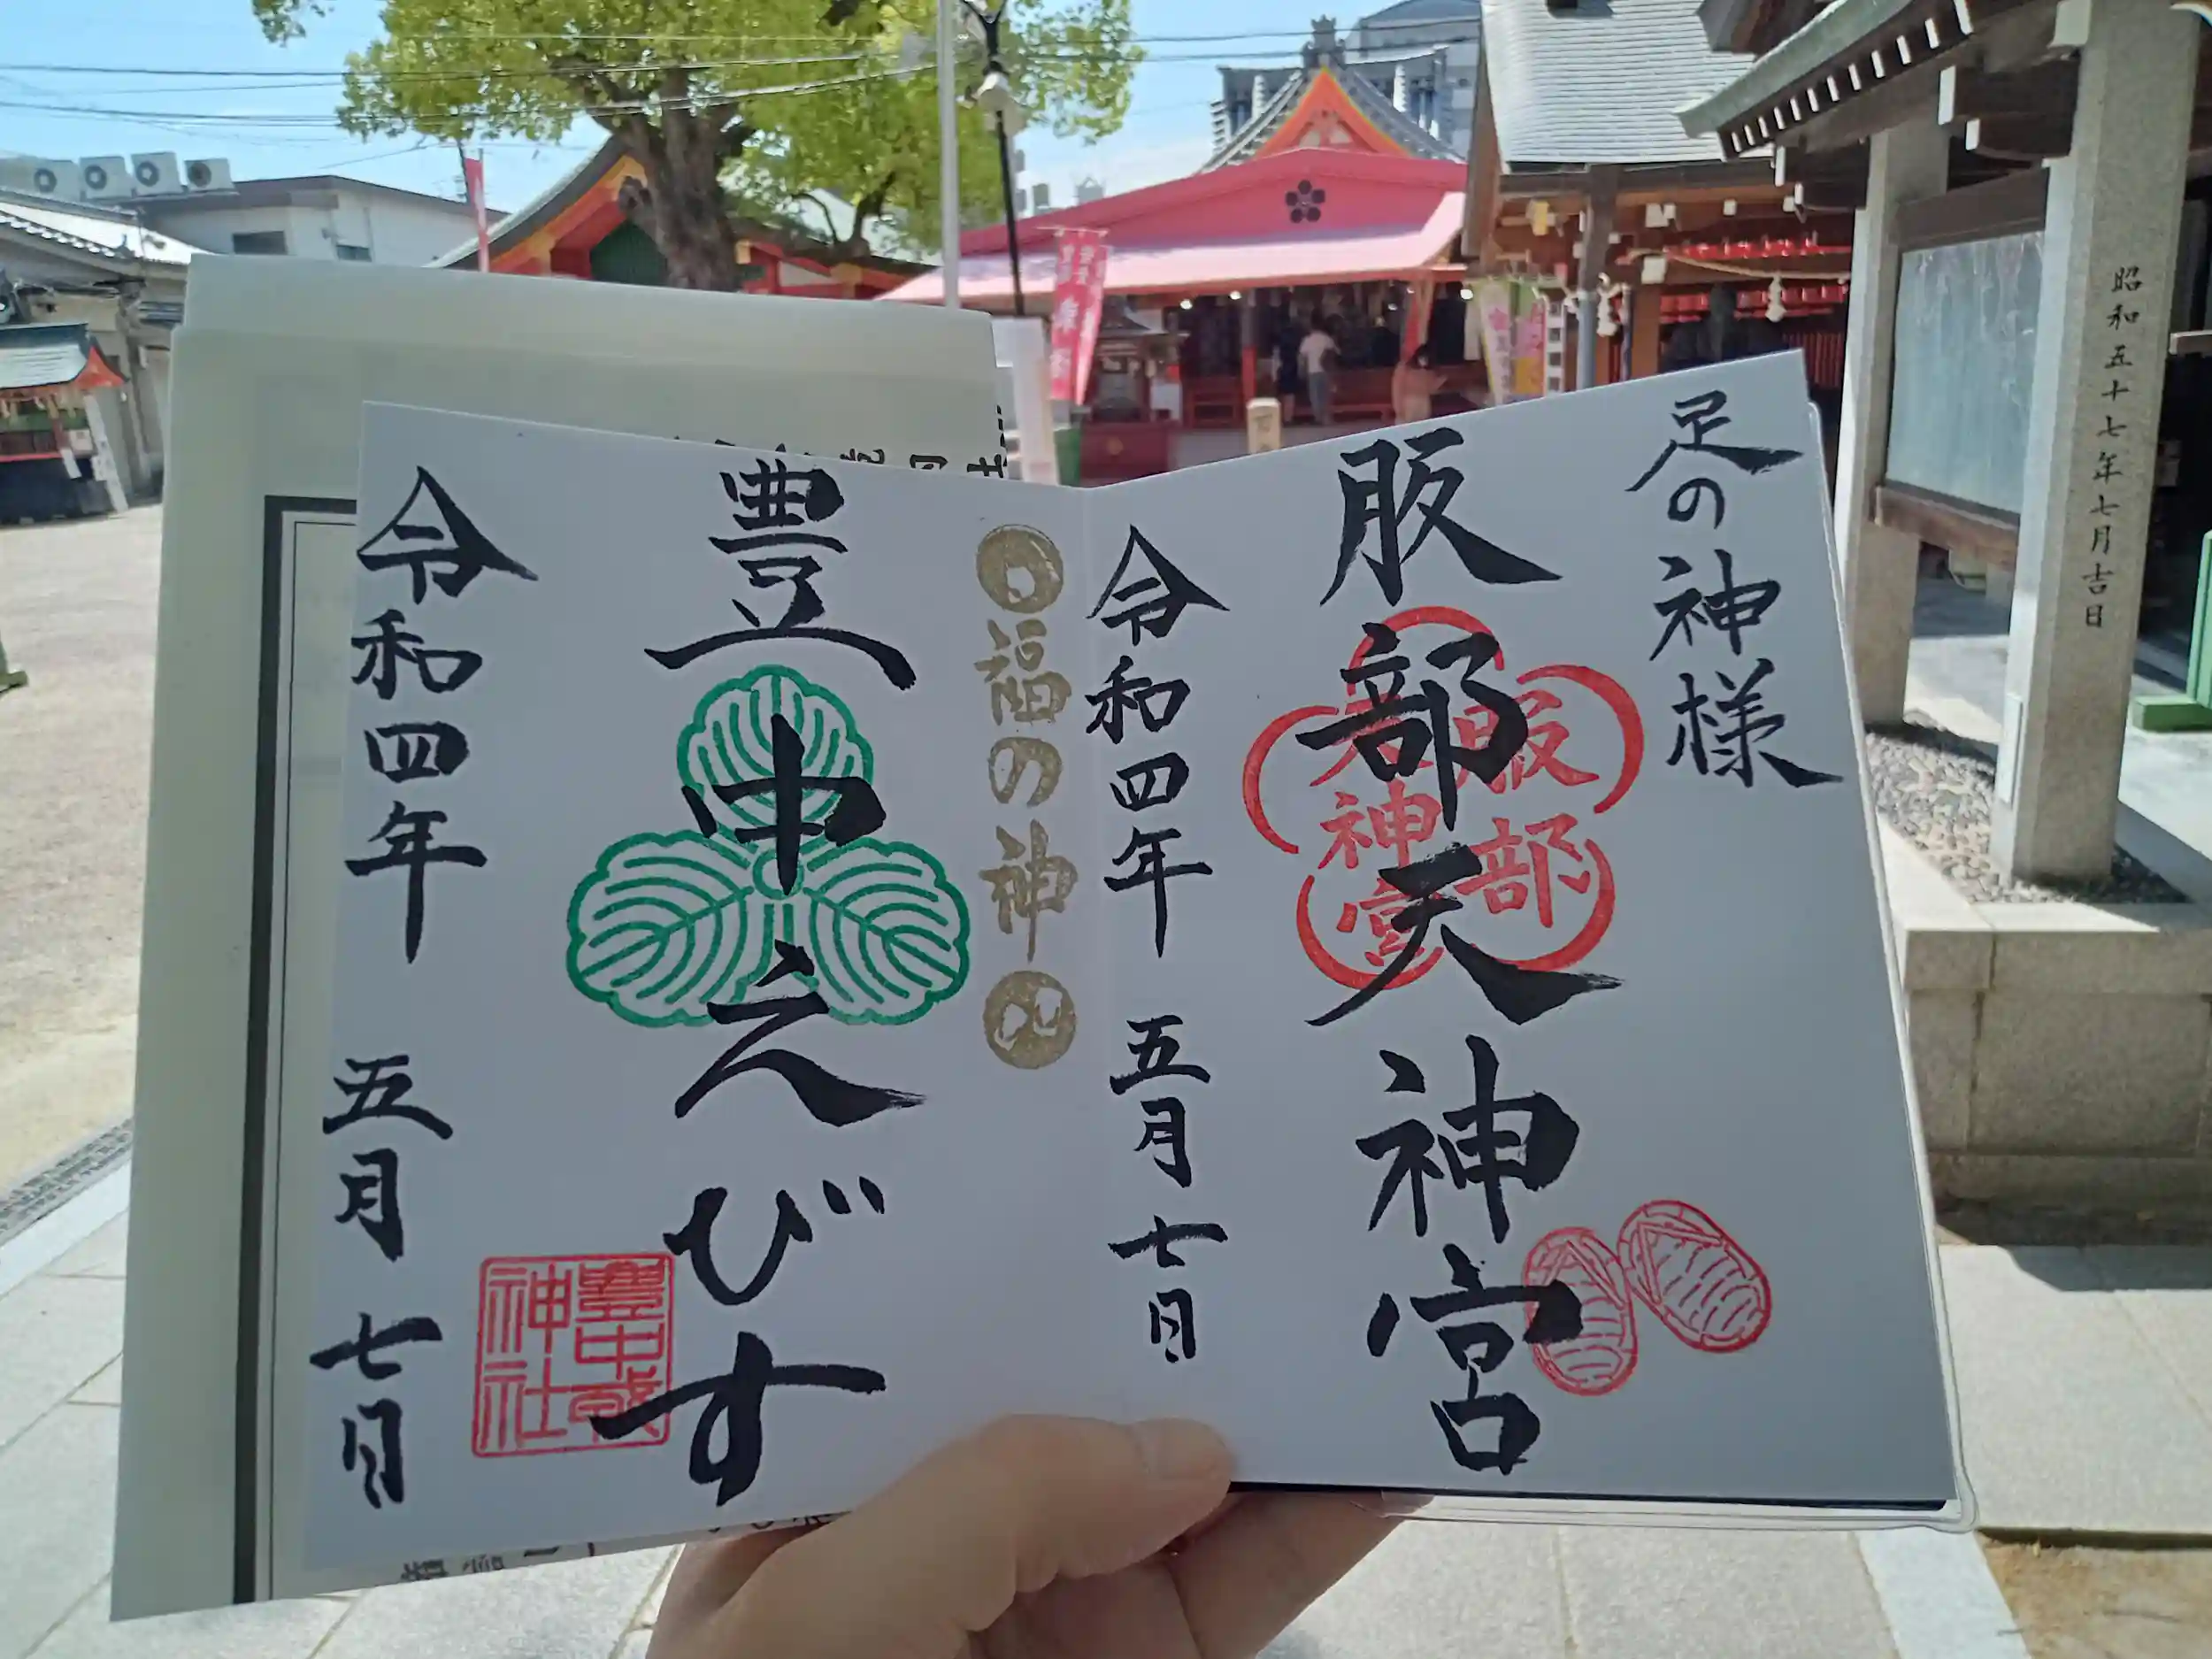 足の神様
服部天神宮
服部
天神宮
令和四年 五月 七日
福の神
豊中えびす
豐中戎
神社
令和四年 五月 七日
昭和五十七年七月吉日